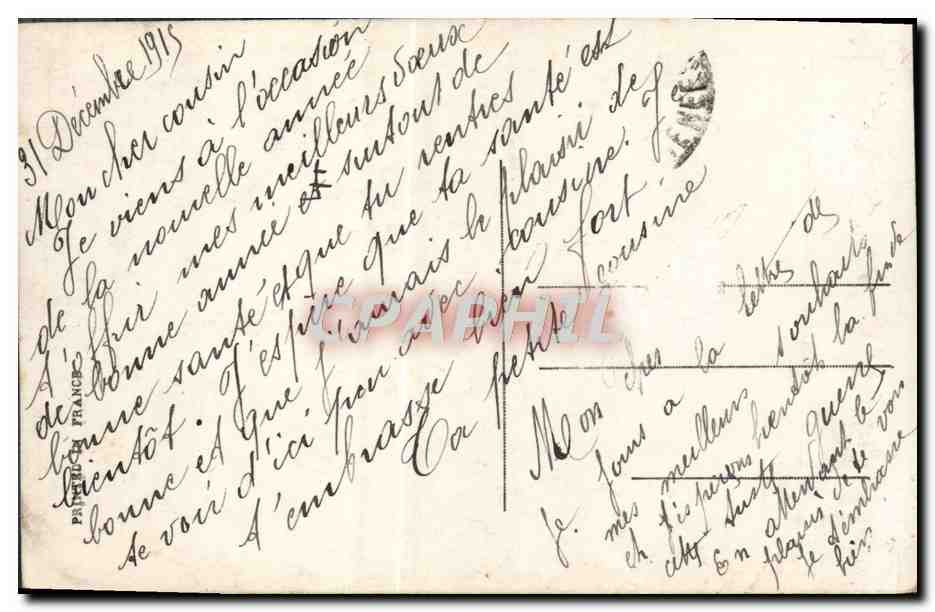 31 Décembre 1915
Mon cher cousin
Je viens à l'occasion
de la nouvelle année
t'offrir mes meilleurs vœux
de bonne année et surtout de
bonne santé et que tu rentres
bientôt. J'espère que ta santé est
bonne et que j'aurais le plaisir de
te voir d'ici peu avec cousine. Je
t'embrasse bien fort
Ta petite cousine
Mon cher
Je joins à la lettre de
mes meilleurs souhaits
et j'espérons bientôt la fin de
cette guerre
En attendant le
plaisir de te voir
je t'embrasse
bien
PRINTED IN FRANCE
CPAPHIL